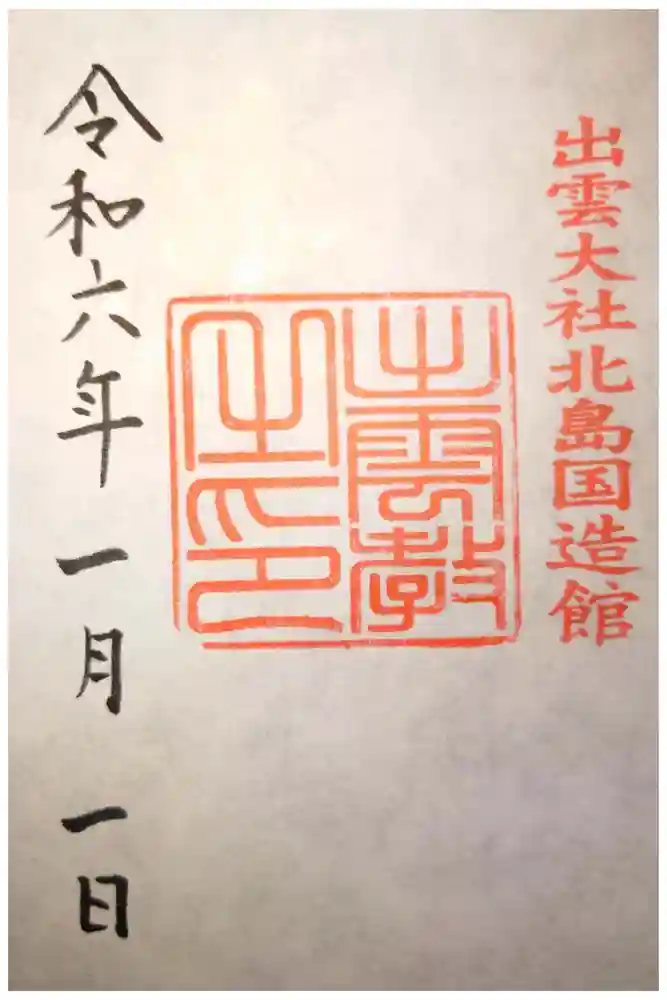 出雲大社北島国造館
出雲教
之印
令和六年一月一日